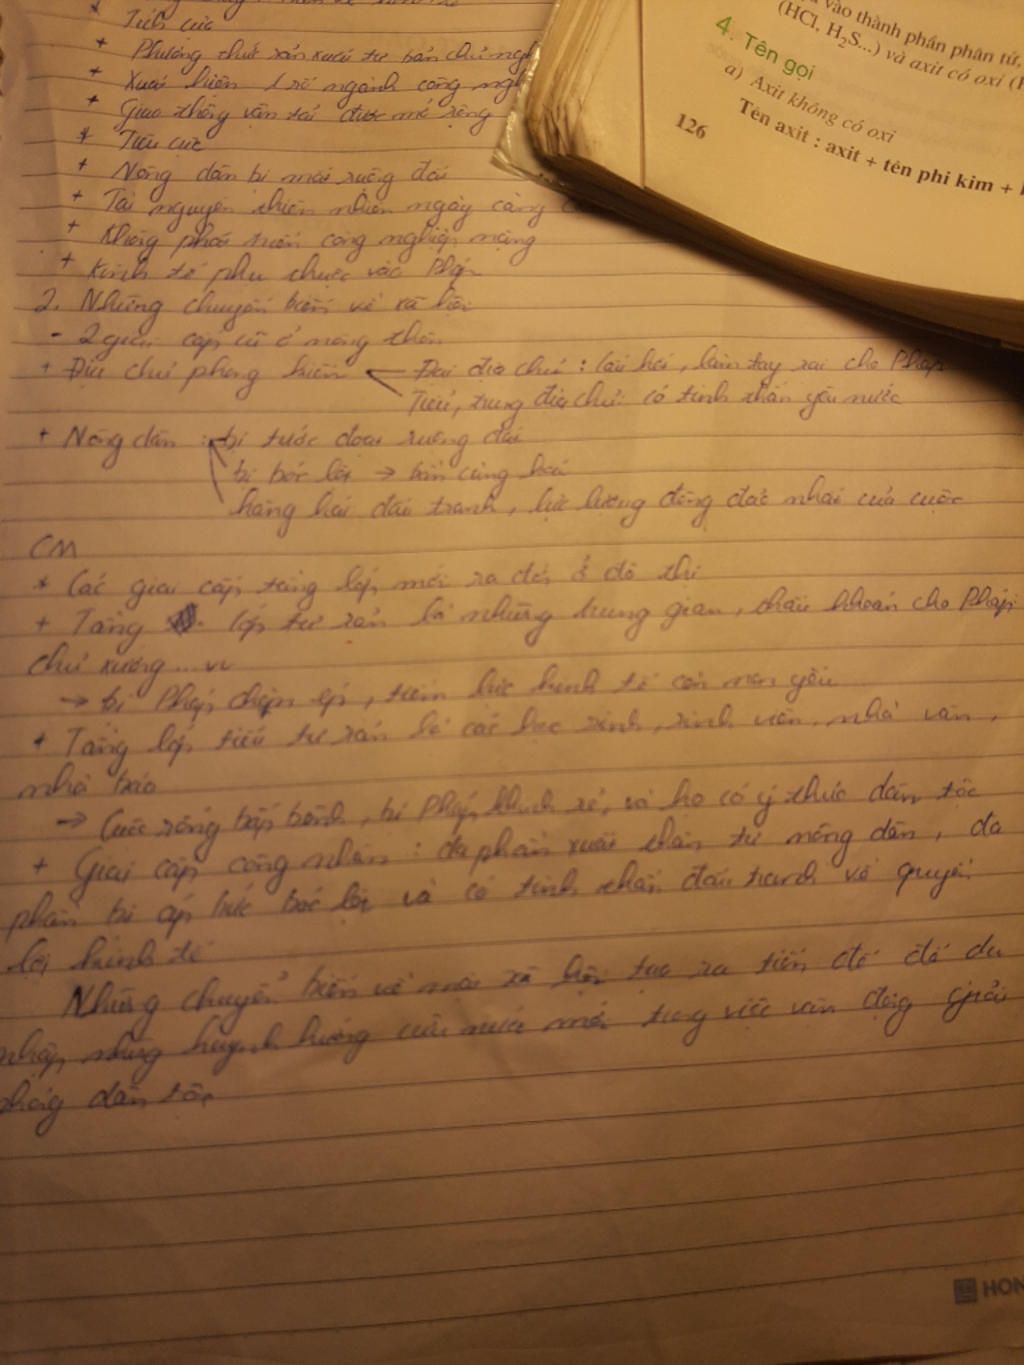 * Tích cực
+ Phương thức sản xuất tư bản chủ ngh
+ Xuất hiện 1 số ngành công ngh
+ Giao thông vận tải được mở rộng
* Tiêu cực
+ Nông dân bị mất ruộng đất
+ Tài nguyên thiên nhiên ngày càng
+ Không phát triển công nghiệp nặng
+ Kinh tế phụ thuộc vào Pháp
2. Những chuyển biến về xã hội
- 2 giai cấp cũ ở nông thôn
+ Địa chủ phong kiến Đại địa chủ: làm tay sai cho Pháp
Tiểu, trung địa chủ: có tinh thần yêu nước
+ Nông dân : bị tước đoạt ruộng đất
bị bóc lột → bần cùng hoá
hăng hái đấu tranh, lực lượng đông đảo nhất của cuộc
CM
* Các giai cấp, tầng lớp mới ra đời ở đô thị
+ Tầng lớp tư sản là những trung gian, thầu khoán cho Pháp,
chủ xưởng ... vv
→ bị Pháp chèn ép, tiềm lực kinh tế còn non yếu
+ Tầng lớp tiểu tư sản là các học sinh, sinh viên, nhà văn,
nhà báo
→ Cuộc sống bấp bênh, bị Pháp khinh rẻ, và họ có ý thức dân tộc
+ Giai cấp công nhân : đa phần xuất thân từ nông dân, đa
phần bị áp bức bóc lột và có tinh thần đấu tranh vì quyền
lợi kinh tế
Những chuyển biến về mặt xã hội tạo ra tiền đề để du
nhập những khuynh hướng cứu nước mới trong việc vận động giải
phóng dân tộc
vào thành phần phân tử,
(HCl, H₂S...) và axit có oxi (
4. Tên gọi
a) Axit không có oxi
Tên axit : axit + tên phi kim +
126
HON